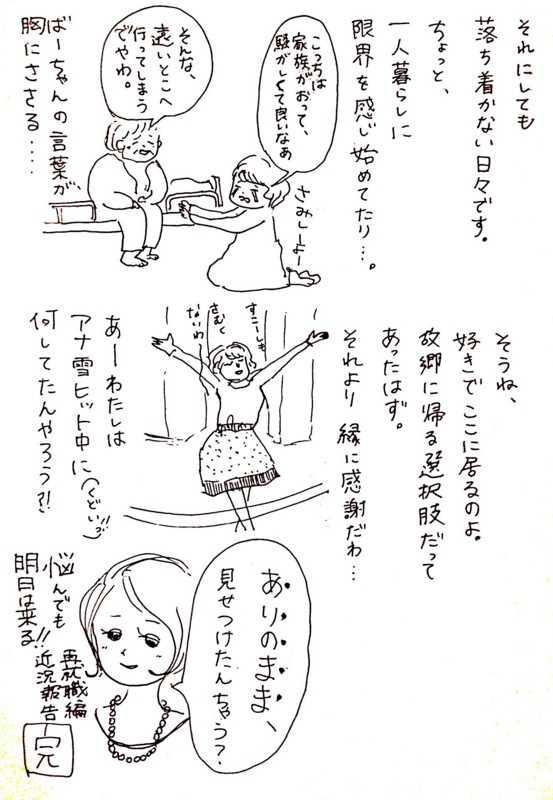 それにしても
落ち着かない日々です。
ちょっと、
一人暮らしに
限界を感じ始めてたり…。
こっちは
家族がおって、
騒がしくて良いなあ
さみしーよー
そんな、
遠いとこへ
行ってしまう
でやわ。
ばーちゃんの言葉が、
胸にささる‥‥
そうね、
好きでここに居るのよ。
故郷に帰る選択肢だって
あったはず。
それより縁に感謝だわ…
すこーしも
さむく
ないわ
あーわたしは
アナ雪ヒット中に
(くどい!!)
何してたんやろう?!
ありのまま、
見せつけたんちゃう?
悩んでも
明日は来る!!
再就職編
近況報告
完